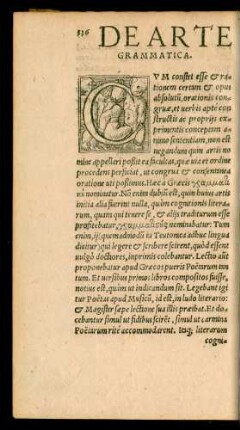 836
DE ARTE
GRAMMATICA.
CVM constet esse & ra-
tionem certum & opus
absolutũ, orationis con-
gruæ, et uerbis aptè con
structis ac proprijs ex-
primentis conceptam a-
nimo sententiam, non est
negandum quin artis no
mine appellari possit ea facultas, quæ uia et ordine
procedem perficiat, ut congrua & conſentinea
oratione uti possimus. Hæc a Græcis γραμματι-
κὴ nominatur. Nõ enim dubiũ est, quin huius artis
initia alia fuerint nulla, quàm cognitionis litera-
rum, quam qui tenere se, & alijs traditurum esse
profitebatur, nominabatur. Tum
enim, quemadmodũ in Teutonica adhuc lingua
dicitur, qui legere & scribere scirent, quòd essent
uulgò doctiores, inprimis celebantur. Lectio aũt
proponebatur apud Græcos pueris Poëtarum tan
tum. Et uersibus primùm libros compositos fuisse,
notius est, quàm ut indicandum sit. Legebant igi
tur Poëtas apud Musicũ, id est, in ludo literario:
& Magister sæpe lectione sua illis præibat. Et do-
cebantur simul ut fidibus scirẽt, simul ut carmina
Poëtarum ritè accommodarent. Itaq; literarum
cogni-